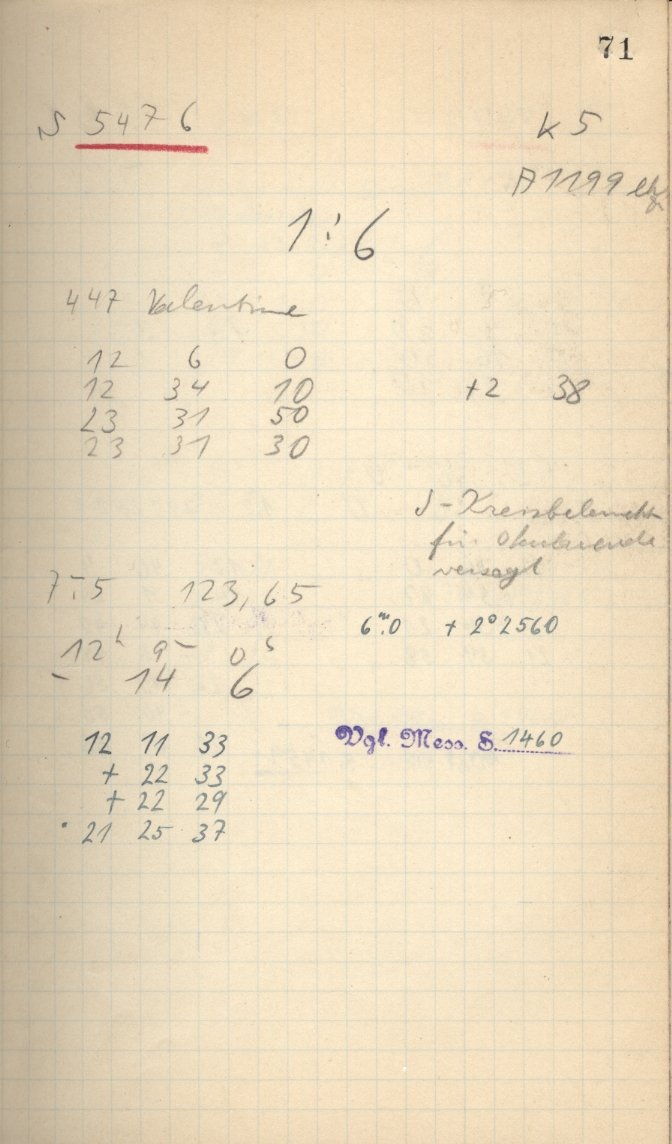 71
S 5476
K 5
A 1199
1:6
447 Valentine
12 6 0
12 34 10 +2 38
23 31 50
23 31 30
S-Kreisbeleucht
für
versagt
7:5 123,65
6.ᵐ0 + 2° 2560
12ʰ 9ᵐ 0ˢ
- 14 6
12 11 33
Vgl. Mess. S. 1460
+ 22 33
+ 22 29
21 25 37